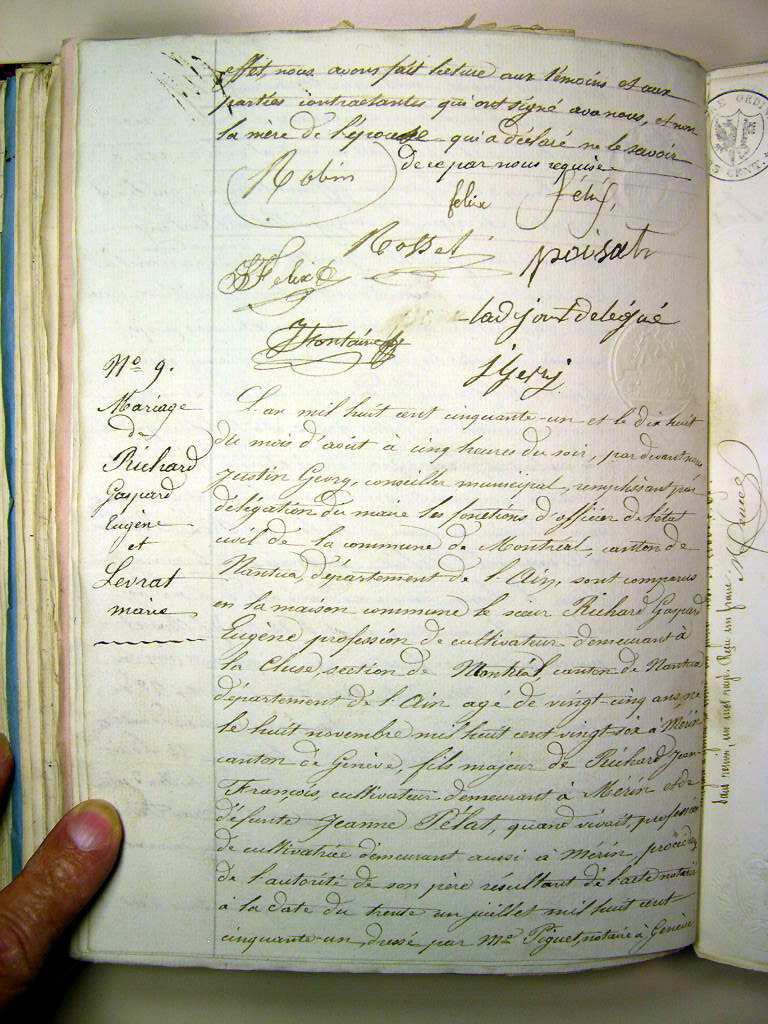 effet, nous avons fait lecture aux témoins et aux
parties contractantes qui ont signé avec nous, et non
la mère de l'épouse qui a déclaré ne le savoir
de ce par nous requise
Robin
felix
felix
Rosset
poisat
Felix
l'adjoint délégué
JFontaine
JGeorj
No 9.
Mariage
de
Richard
Gaspard
Eugène
et
Levrat
marie
L'an mil huit cent cinquante-un et le dix huit
du mois d'août à cinq heures du soir, par devant nous
Justin Georg, conseiller municipal, remplissant par
délégation du maire les fonctions d'officier de l'état
civil de la commune de Montréal, canton de
Nantua, département de l'Ain, sont comparus
en la maison commune le sieur Richard Gaspard
Eugène profession de cultivateur demeurant à
la Cluse, section de Montréal, canton de Nantua
département de l'Ain agé de vingt-cinq ans, né
le huit novembre mil huit cent vingt-six à Mérin
canton de Genève, fils majeur de Richard Jean-
François, cultivateur demeurant à Mérin et de
défunte Jeanne Pélat, quand vivait, profession
de cultivatrice demeurant aussi à Mérin, procédant
de l'autorité de son père résultant de l'acte notarié
à la date du trente un juillet mil huit cent
cinquante-un, dressé par Me Piguet, notaire à Genève